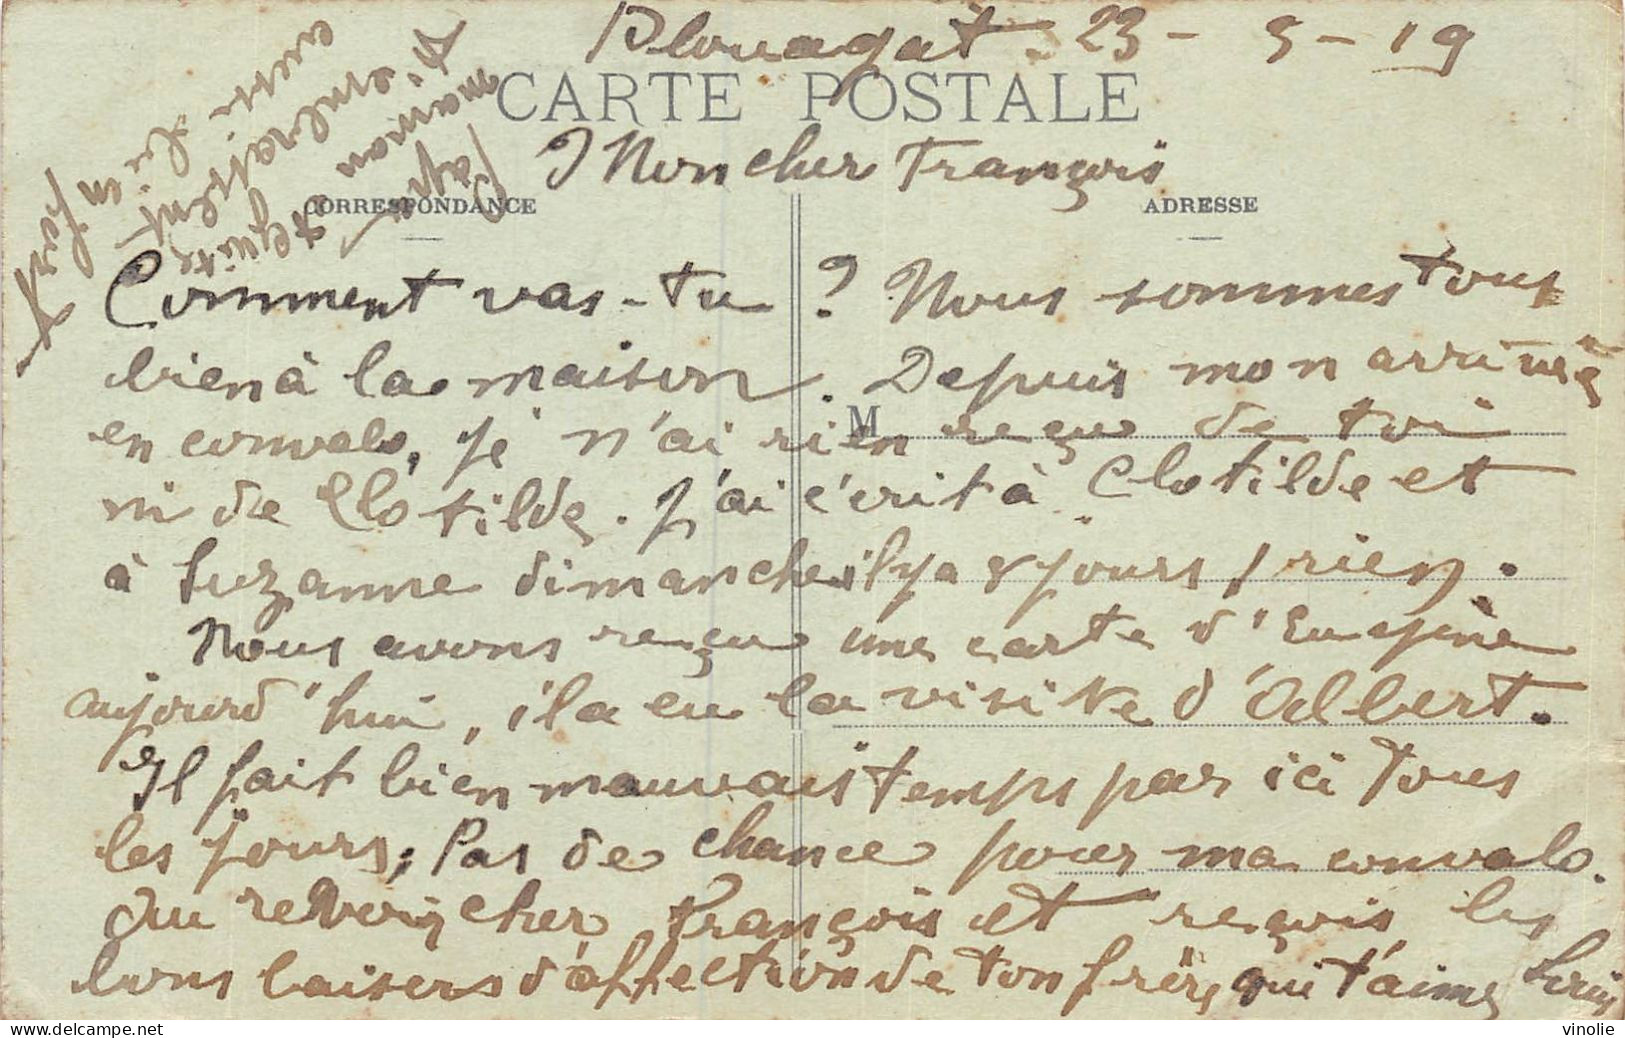 Plouagat 23 - 5 - 19
CARTE POSTALE
Mon cher François
CORRESPONDANCE
ADRESSE
Comment vas-tu ? Nous sommes tous
bien à la maison. Depuis mon arrivée
M
en convalo, je n'ai rien reçu de toi
ni de Clotilde. J'ai écrit à Clotilde et
à Suzanne dimanche il y a 8 jours, rien.
Nous avons reçu une carte d'Eugène
aujourd'hui, il a eu la visite d'Albert.
Il fait bien mauvais temps par ici tous
les jours, Pas de chance pour ma convalo.
Au revoir cher François et reçois les
bons baisers d'affection de ton frère qui t'aime Louis
Papa
maman
t'embrassent
aussi bien
fort
vinolie